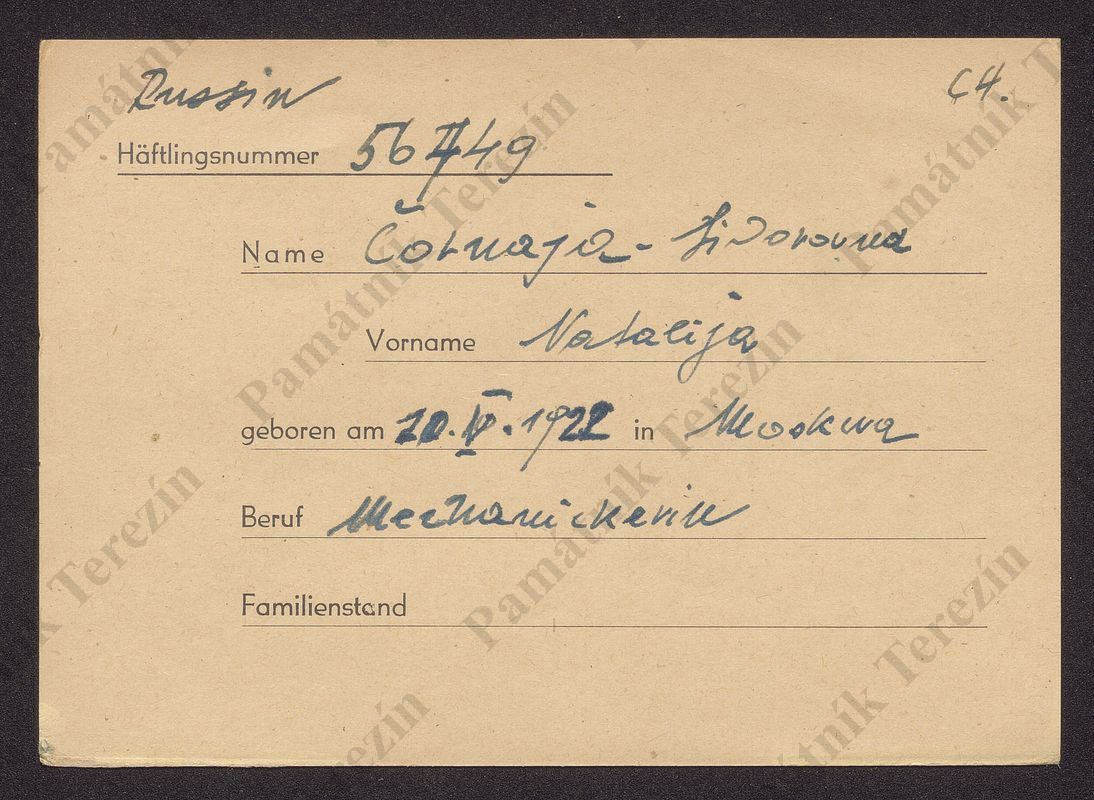 Russin
C4.
Häftlingsnummer 56749
Name Čornaja - Sidorovna
Vorname Natalija
geboren am 20. V. 1922 in Moskwa
Beruf Mechanickerin
Familienstand
Památník Terezín